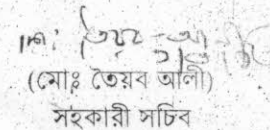 (মোঃ তৈয়ব আলী)
সহকারী সচিব